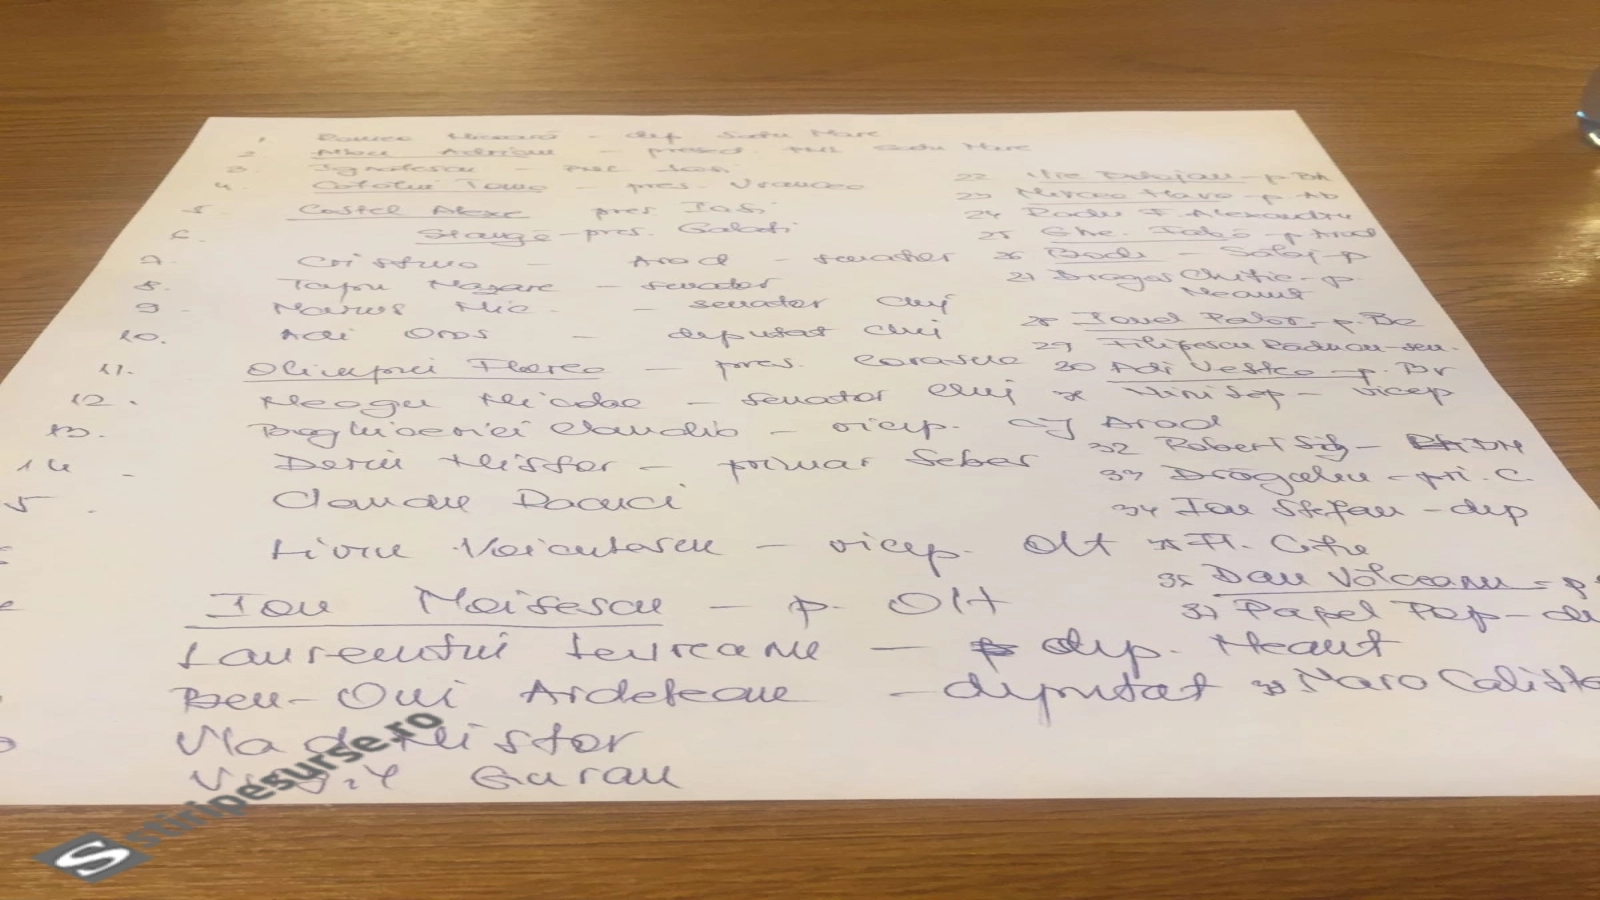 1 Romeo Nicoară - dep Satu Mare
2 Adrian - Satu Mare
3
4. Cătălin Toma - pres. Vrancea
5. Costel Alexe pres. Iași
6. Stângă - pres. Galați
7. Cristina - Arad - senator
8. Tapu Nazare - senator
9. Marius Nic - senator Cluj
10. Adi Oros - deputat Cluj
11. Olimpiu Florea - pres.
12. Neagu Nicolae - senator Cluj
13. Claudiu - vicep. CJ Arad
14 - Dorin Nistor - primar Sebeș
5. Claudiu Racuci
Liviu Voiculescu - vicep. Olt
Ion Moisescu - p. Olt
Laurențiu Leureanu - dep. Neamț
Ben-Oni Ardelean - deputat
Vlad Nistor
Virgil Guran
22 - p. BN
23 Mircea Hava - p. Ab
24 Radu F. Alexandru
25 Ghe. Falcă - p Arad
26 Bode - Sălaj - p
27 Dragoș Chitic - p.
Neamț
28 Ionel Palăr - p. Bc
29 Filipescu Răducu - sen.
30 Adi Vestea - p. Br
31 Nini Săp - vicep
32 Robert Sighi - DN
33 Drăgulin - pri. C.
34 Ion Ștefan - dep
35 Fl. Cîțu
36 Dan Vîlceanu - p
37 Pavel Pop - de
38 Mara Calista
stiripesurse.ro